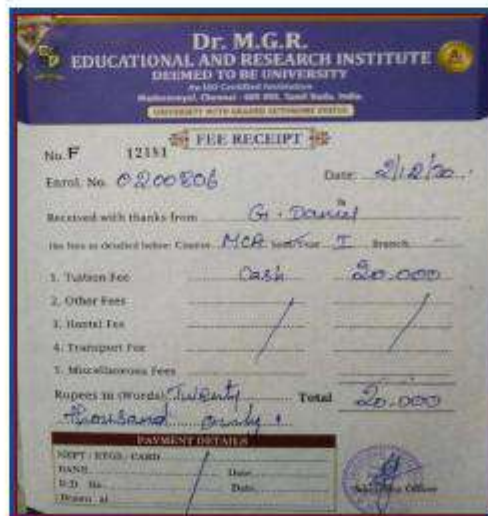 Dr. M.G.R.
EDUCATIONAL AND RESEARCH INSTITUTE
DEEMED TO BE UNIVERSITY
An ISO Certified Institution
Maduravoyal, Chennai - 600 095, Tamil Nadu, India.
UNIVERSITY WITH GRADED AUTONOMY STATUS
FEE RECEIPT
No. F 12181
Enrol. No. 0200806 Date: 2/12/20
Received with thanks from G. Daniel
the fees as detailed below: Course MCA Sem/Year I Branch -
1. Tuition Fee Cash 20.000
2. Other Fees
3. Hostel Fee
4. Transport Fee
5. Miscellaneous Fees
Rupees in (Words) Twenty Total 20.000
thousand only
PAYMENT DETAILS
NEFT / RTGS / CARD
BANK Date
D.D. No. Date
Drawn at Officer